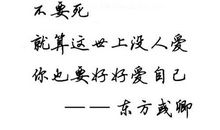 不要死
就算这世上没人爱
你也要好好爱自己
——东方彧卿